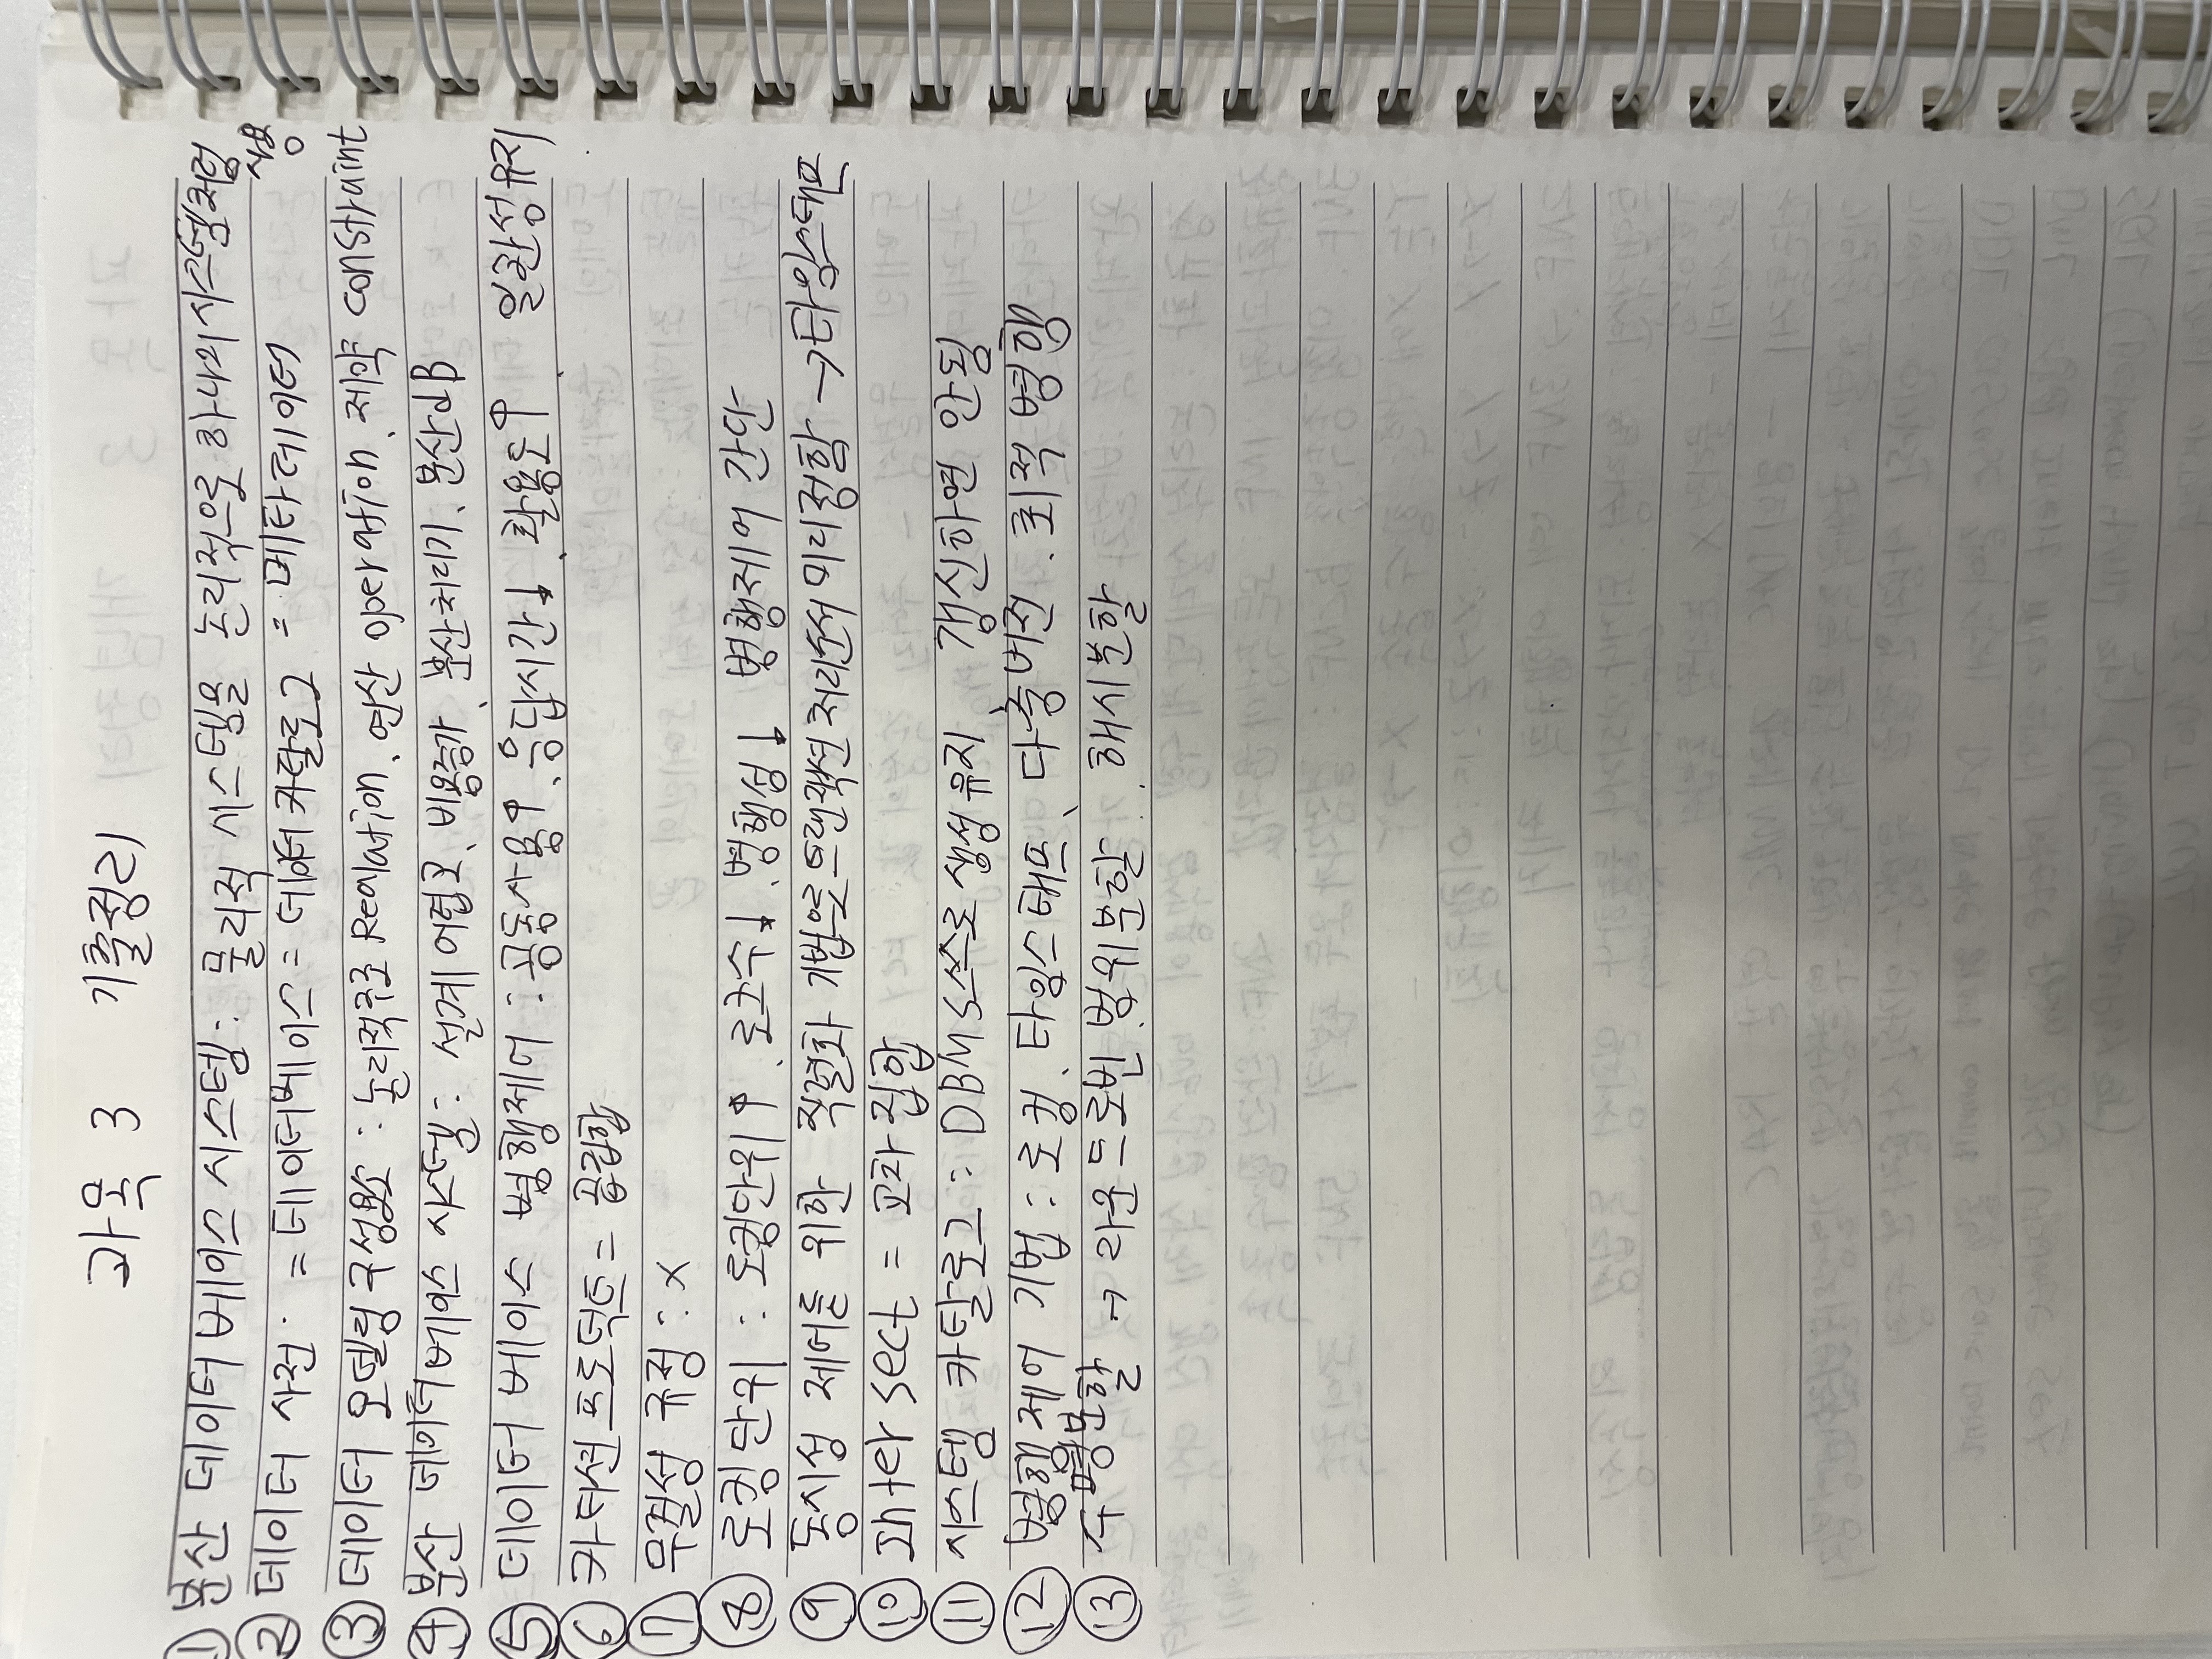 과목 3 기출정리
① 분산 데이터 베이스 시스템: 물리적 시스템을 논리적으로 하나의 시스템처럼 사용
② 데이터 사전. = 데이터베이스 = 데이터 카탈로그 = 메타데이터
③ 데이터 모델링 구성요소 : 논리적구조 Relation, 연산 operation, 제약 constraint
④ 분산 데이터베이스 시스템: 설계 어렵고, 비용증가, 분산처리기, 분산DB
⑤ 데이터 베이스 병행제어 : 공동사용↑, 응답시간↓, 활용도↑, 일관성유지
⑥ 카티션 프로덕트 = 곱집합
⑦ 무결성 규정 : X
⑧ 로킹단위 : 로킹단위↑, 로크수↓, 병행성↓, 병행제어 간단
⑨ 동시성 제어를 위한 직렬화 기법으로 트랜잭션 처리순서 미리정함 → 타임스탬프
⑩ 교차 sect = 교차집합
⑪ 시스템 카탈로그 : DBMS 스스로 생성유지 갱신하면 안됨
⑫ 병행제어 기법 : 로킹, 타임스탬프, 다중버전, 최적병행
⑬ 수평분할 → 라운드로빈, 범위분할, 해시분할